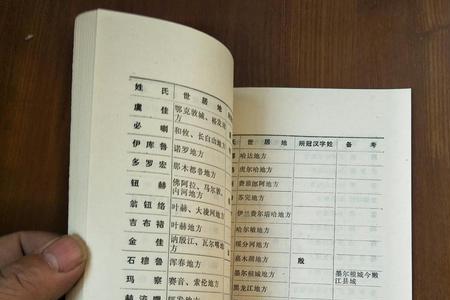 姓 氏 世 居 地
虞 佳 鄂克敦城、
方
必 喇 和攸、长白山地方
伊 库 鲁 诺罗地方
多 罗 宏 那木都鲁地方
钮 赫 佛阿拉、马尔敦、
内河地方
翁 钮 络 叶赫、大凌河地方
吉 布 褚 叶赫地方
金 佳 讷殷江、瓦尔喀
方
石 穆 鲁 浑春地方
玛 察 赛音、索伦地方
世 居 地 所冠汉字姓 备 考
哈达地方
虎尔哈地方
费雅郎阿地方
苏完地方
伊兰费尔塔哈地方
哈尔敏地方
绥分河地方
嘉木湖地方 殷
墨尔根城地方 墨尔根城今嫩
江县城
黑龙江地方